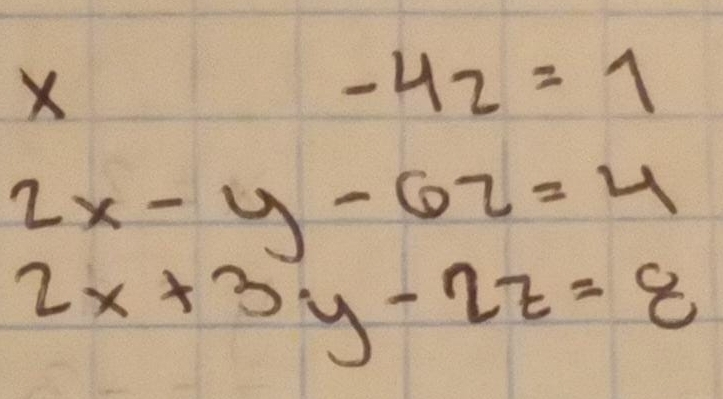 x -4z = 1
2x - y - 6z = 4
2x + 3y - 2z = 8